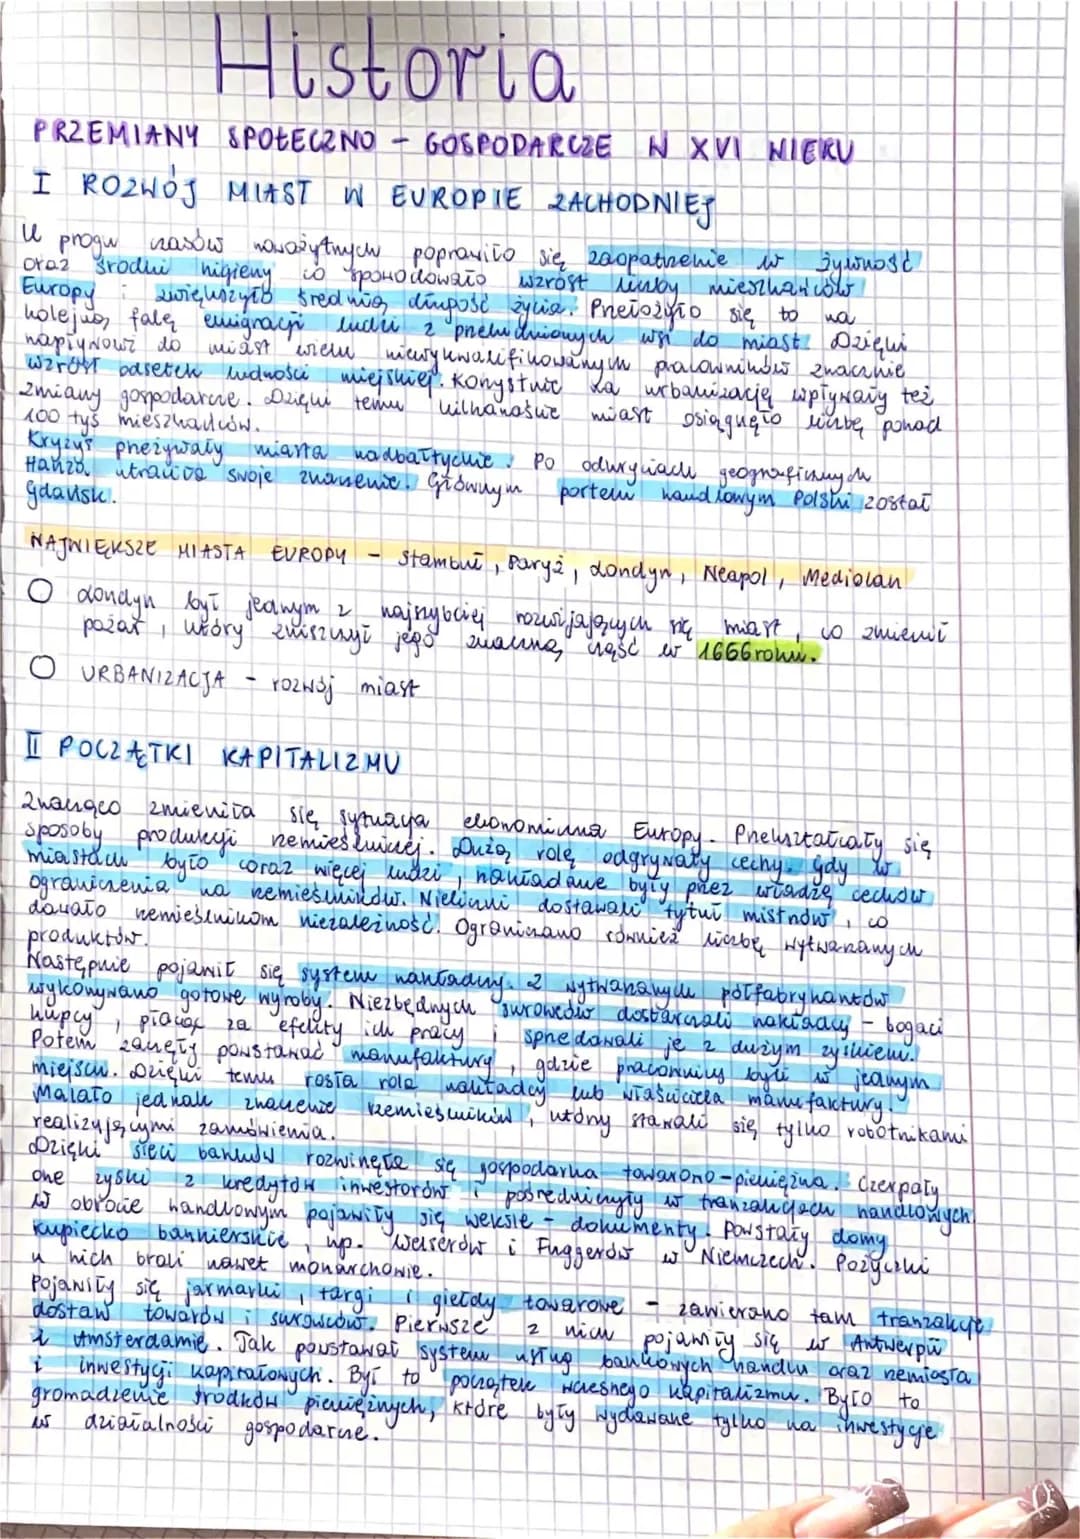 Historia
PRZEMIANY SPOŁECZNO - GOSPODARCZE W XVI WIEKU
I ROZWÓJ MIAST W EUROPIE ZACHODNIEJ
U progu czasów nowożytnych poprawiło się zaopatrzenie w żywność
oraz środki higieny co spowodowało wzrost liczby mieszkańców
Europy i zwiększyło średnią długość życia. Przełożyło się to na
kolejną falę emigracji ludzi z przeludnionych wsi do miast. Dzięki
napływowi do miast wielu niewykwalifikowanym pracowników znacznie
wzrósł odsetek ludności miejskiej. Korzystnie na urbanizację wpływały też
zmiany gospodarcze. Dzięki temu kilkanaście miast osiągnęło liczbę ponad
100 tyś mieszkańców.
Kryzys przeżywały miasta nadbałtyckie. Po odkryciach geograficznych
Hanza utraciła swoje znaczenie. Głównym portem handlowym Polski został
Gdańsk.
NAJWIĘKSZE MIASTA EUROPY - Stambuł, Paryż, Londyn, Neapol, Mediolan
Londyn był jednym z najszybciej rozwijających się miast, co zmienił
pożar, który zniszczył jego znaczną część w 1666 roku.
URBANIZACJA - rozwój miast
II POCZĄTKI KAPITALIZMU
Znacząco zmieniła się sytuacja ekonomiczna Europy. Przekształcały się
sposoby produkcji rzemieślniczej. Dużą rolę odgrywały cechy. Gdy w
miastach było coraz więcej ludzi, nakładane były przez władzę cechów
ograniczenia na rzemieślników. Nieliczni dostawali tytuł mistrzów, co
dawało rzemieślnikom niezależność. Ograniczano również liczbę wytwarzanych
produktów.
Następnie pojawił się system nakładczy. Z wytwarzanych półfabrykantów
wykonywano gotowe wyroby. Niezbędnych surowców dostarczali nakładcy - bogaci
kupcy, płacąc za efekty ich pracy i sprzedawali je z dużym zyskiem.
Potem zaczęły powstawać manufaktury, gdzie pracownicy byli w jednym
miejscu. Dzięki temu rosła rola nakładcy lub właściciela manufaktury.
Malało jednak znaczenie rzemieślników, którzy stawali się tylko robotnikami
realizującymi zamówienia.
Dzięki sieci banków rozwinęła się gospodarka towarowo-pieniężna. Czerpały
one zyski z kredytów inwestorów i pośredniczyły w tranzakcjach handlowych.
W obrocie handlowym pojawiły się weksle - dokumenty. Powstały domy
kupiecko bankierskie, np. Welserów i Fuggerów w Niemczech. Pożyczki
u nich brali nawet monarchowie.
Pojawiły się jarmarki, targi i giełdy towarowe - zawierano tam tranzakcje
dostaw towarów i surowców. Pierwsze z nich pojawiły się w Antwerpii
i Amsterdamie. Tak powstawał system usług bankowych handlu oraz rzemiosła
i inwestycji kapitałowych. Był to początek wczesnego kapitalizmu. Było to
gromadzenie środków pieniężnych, które były wydawane tylko na inwestycje
w działalności gospodarcze.